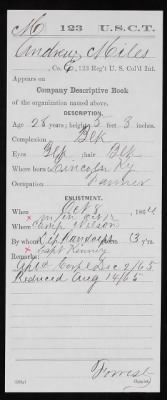 M 123 U.S.C.T.
Andrew Miles
Co. E, 123 Reg't U. S. Col'd Inf.
Appears on
Company Descriptive Book
of the organization named above.
DESCRIPTION.
Age 28 years; height 5 feet 3 inches.
Complexion Blk
Eyes Blk, hair Blk
Where born Lincoln Ky
Occupation Farmer
ENLISTMENT.
When Oct 8, 1864
Where Camp Nelson
By whom Randolph 3 y'rs.
Capt Kinney
Remarks:
Appt Corpl Dec 2/65
Reduced Aug 14/65
Forrest
Copyist.